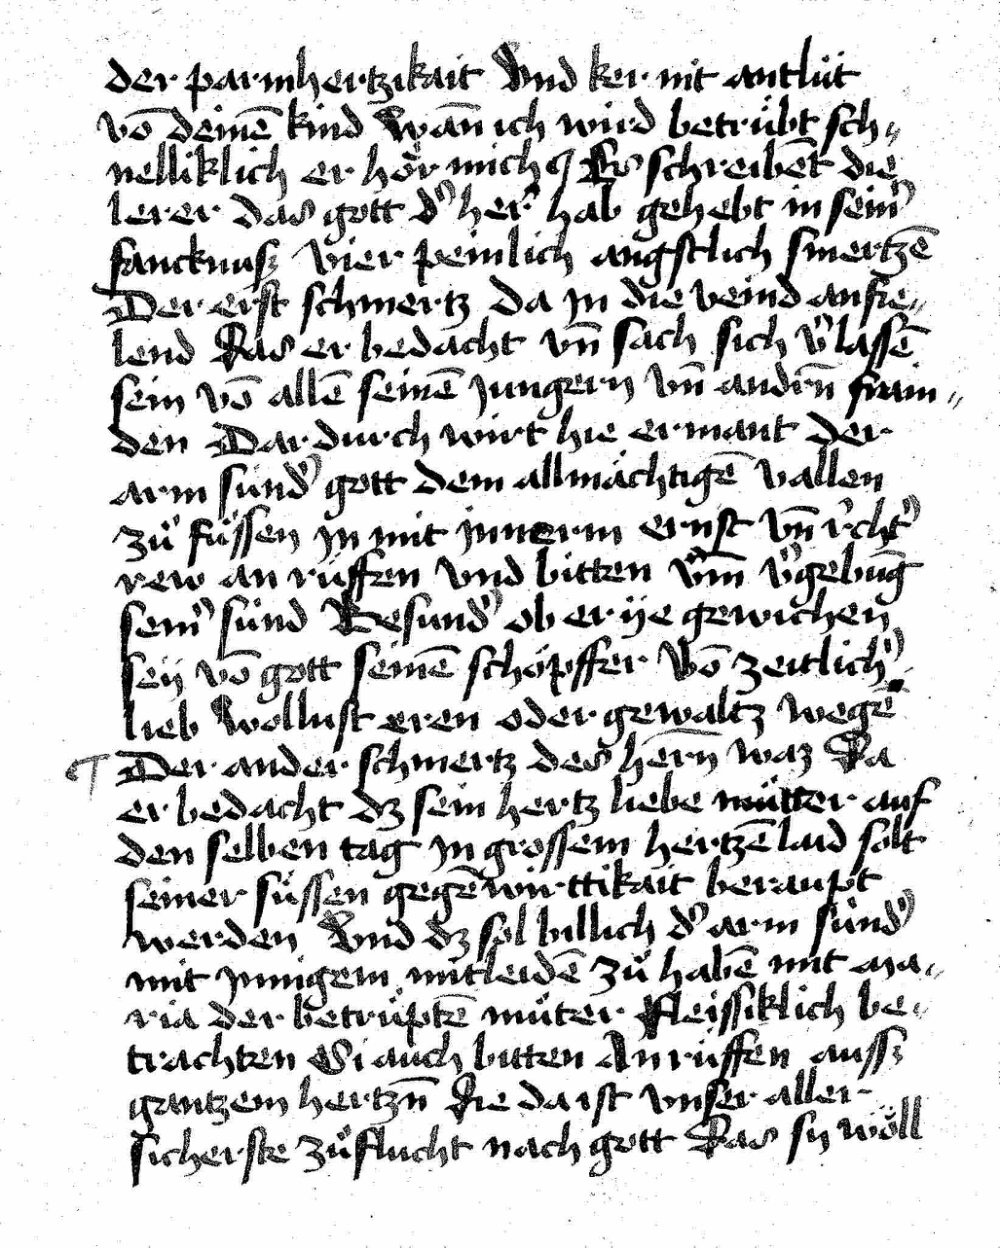 der parmhertzikait Und ker nit antlüt
vō deinē kind Wañ ich wird betrübt sch„
nelliklich er hör mich ¶ Es schreibēt die
lerer das gott d' her' hab gehebt in sein'
fancknusz vier peinlich angstlich smertzē
Der erst schmertz da jn die veind anfie„
lend Das er bedacht vn̄ sach sich v'lassē
sein vō allē seinē jungern vn̄ andrn̄ frain„
den Dardurch wirt hie ermant der
arm sünd' gott dem allmächtigē vallen
zů füssen jn mit jnnerm ernst vn̄ r'cht'
rew an rüffen vnd bitten v'm̄ v'gebūg
sein' sünd Besund' ob er ije gewichen
seij vō gott seinē schöpffer Vō zeitlich'
lieb wollust eren oder gewaltz wegē
¶ Der ander schmertz des hern̄ waz Da
er bedacht dz sein hertz liebe mütter auf
den selben tag jn grossem hertzēlaid solt
seiner süssen gegēwürttikait beraupt
werden Vnd dz sol billich d' arm sünd'
mit jnnigem mitleidē zů habē mit ma„
ria der betrüptē müter fleissiklich be„
trachten Si auch bitten Anrüffen aussz
gantzem hertzn̄ Die da ist vnser aller
sicherste zůflucht nach gott Das sij wöll